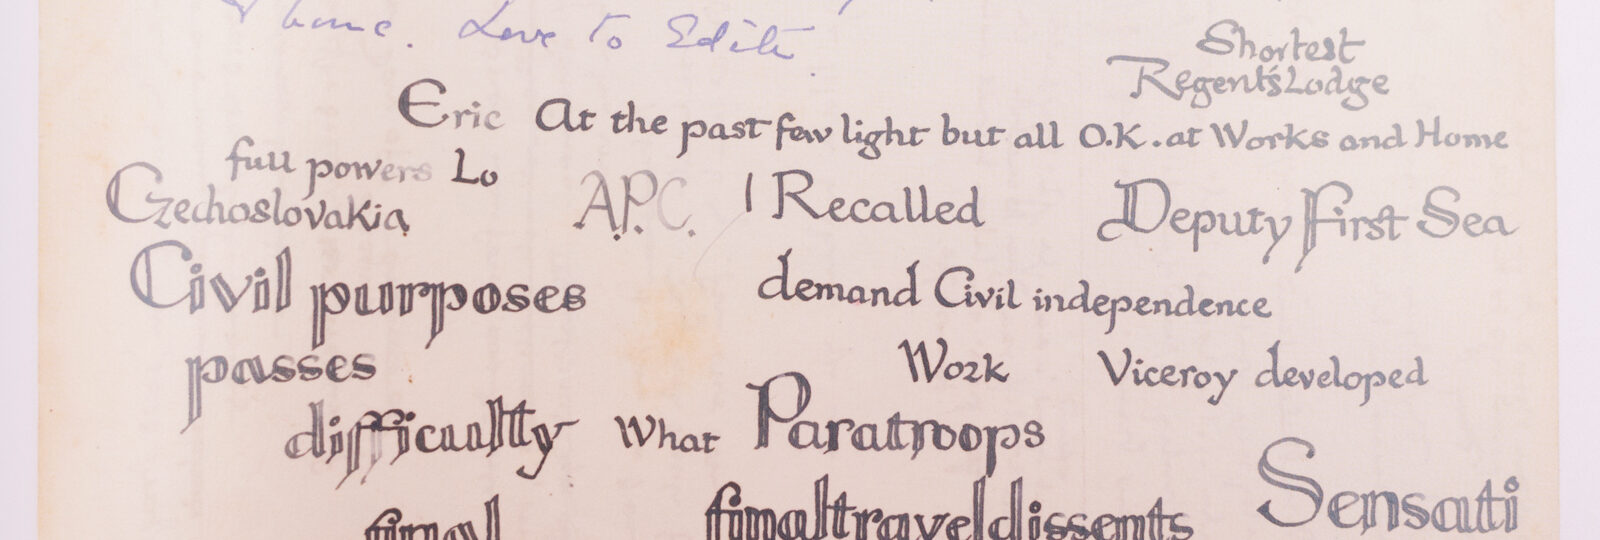 home. Love to Edith.
Shortest
Regent's Lodge
Eric At the past few light but all O.K. at Works and Home
full powers Lo
Czechoslovakia A.P.C. I Recalled Deputy First Sea
Civil purposes demand Civil independence
passes Work Viceroy developed
difficulty What Paratroops
Sensati
final finaltraveldissents